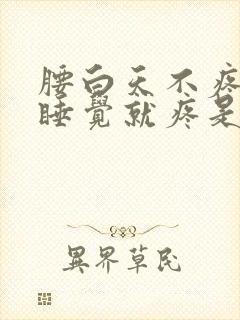 腰白天不疼
睡覺就疼是
異界草民